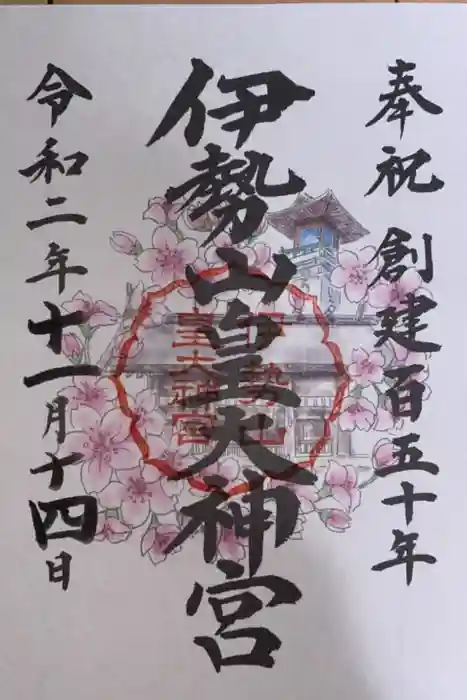 奉祝 創建百五十年
伊勢山皇大神宮
令和二年十一月十四日
伊勢山
皇大神宮